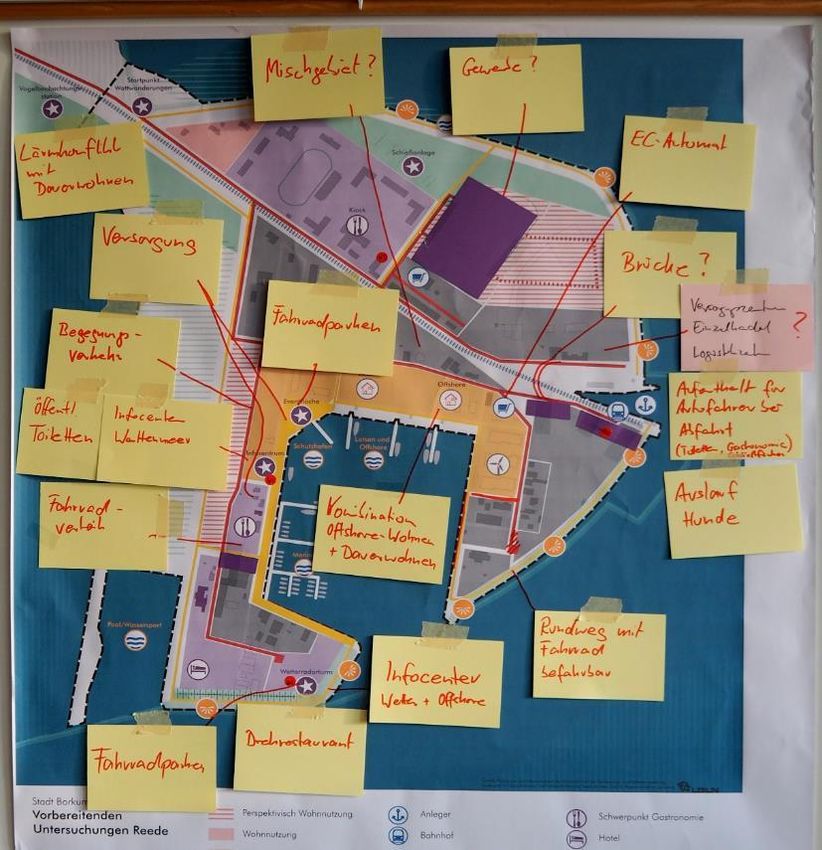 Mischgebiet?
Gewerbe?
Startpunkt
Wattwanderungen
Vogelbeobachtungs-
station
EC-Automat
Lärmkonflikt
mit
Dauerwohnen
Schießanlage
Kiosk
Versorgung
Brücke?
Einzelhandel
?
Fahrradparken
Begegnungs-
verkehr
Offshore
Öffentl
Toiletten
Infocenter
Wattenmeer
Aufenthalt für
Autofahrer bei
Abfahrt
(Toiletten, Gastronomie)
Schutzhafen
Lotsen und
Offshore
Auslauf
Hunde
Fahrrad-
verleih
Kombination
Offshore-Wohnen
+ Dauerwohnen
Pool/Wassersport
Rundweg mit
Fahrrad
befahrbar
Wetterradarturm
Infocenter
Wetter + Offshore
Fahrradparken
Drehrestaurant
Stadt Borkum
Vorbereitenden
Untersuchungen Reede
Perspektivisch Wohnnutzung
Wohnnutzung
Anleger
Bahnhof
Schwerpunkt Gastronomie
Hotel